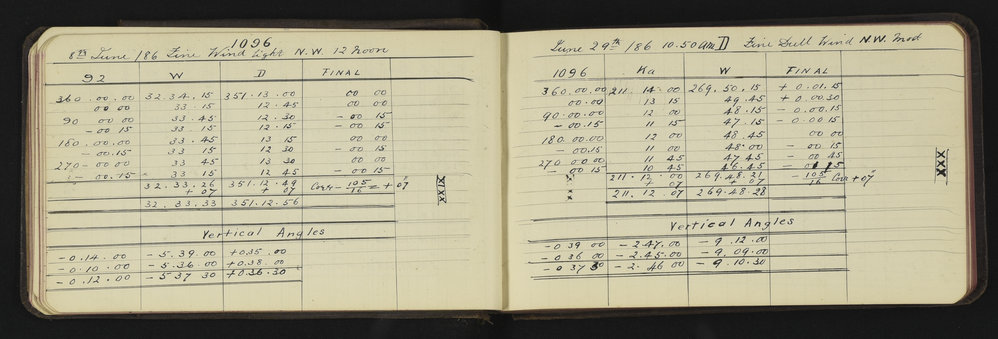 1096
8th June /86 Fine Wind light N.W. 12 Noon
92 W D FINAL
360.00.00 32.34.15 351.13.00 00 00
00 00 33.15 12.45 00 00
90 00 00 33.45 12.30 - 00 15
- 00 15 33.15 12.15 - 00 15
180.00.00 33.45 13 15 00 00
- 00.15 33 15 12 30 - 00 15
270-00.00 33 45 13 30 00 00
- 00.15 33 15 12 45 - 00 15
32.33.26 351.12.49 Corr - 105/16 = + 07"
+ 07 + 07
32.33.33 351.12.56
XXIX
Vertical Angles
-0.14.00 -5.39.00 +0.35.00
-0.10.00 -5.36 00 +0.38.00
-0.12.00 -5 37 30 +0.36.30
June 29th /86 10.50 am D Fine Dull Wind N.W. Mod
1096 Ka W FINAL
360.00.00 211. 14.00 269.50.15 + 0.01.15
00.00 13 15 49.45 + 0.00 30
90.00.00 12 00 48.15 - 0.00 15
- 00.15 11 15 47.15 - 0.00 15
180.00.00 12 00 48.45 00 00
- 00.15 11 00 48.00 - 00 15
270 00.00 11 45 47 45 - 00 45
- 00 15 10 45 46.45
211.12.00 269.48.21 - 105/16 Corr + 07"
+ 07 + 07
211.12.07 269.48.28
XXX
Vertical Angles
-0 39 00 -2.47.00 -9.12.00
-0 36 00 -2.45.00 -9.09.00
-0 37 30 -2.46 00 -9.10.30